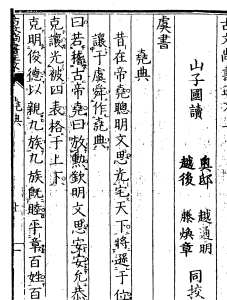 山子國讀
奧邸 越通明
越後 滕煥章 同挍
虞書
堯典
昔在帝堯聰明文思光宅天下將遜于位
讓于虞舜作堯典
曰若稽古帝堯曰放勲欽明文思安安允恭
克讓光被四表格于上下
克明俊德以親九族九族旣睦平章百姓百
堯典